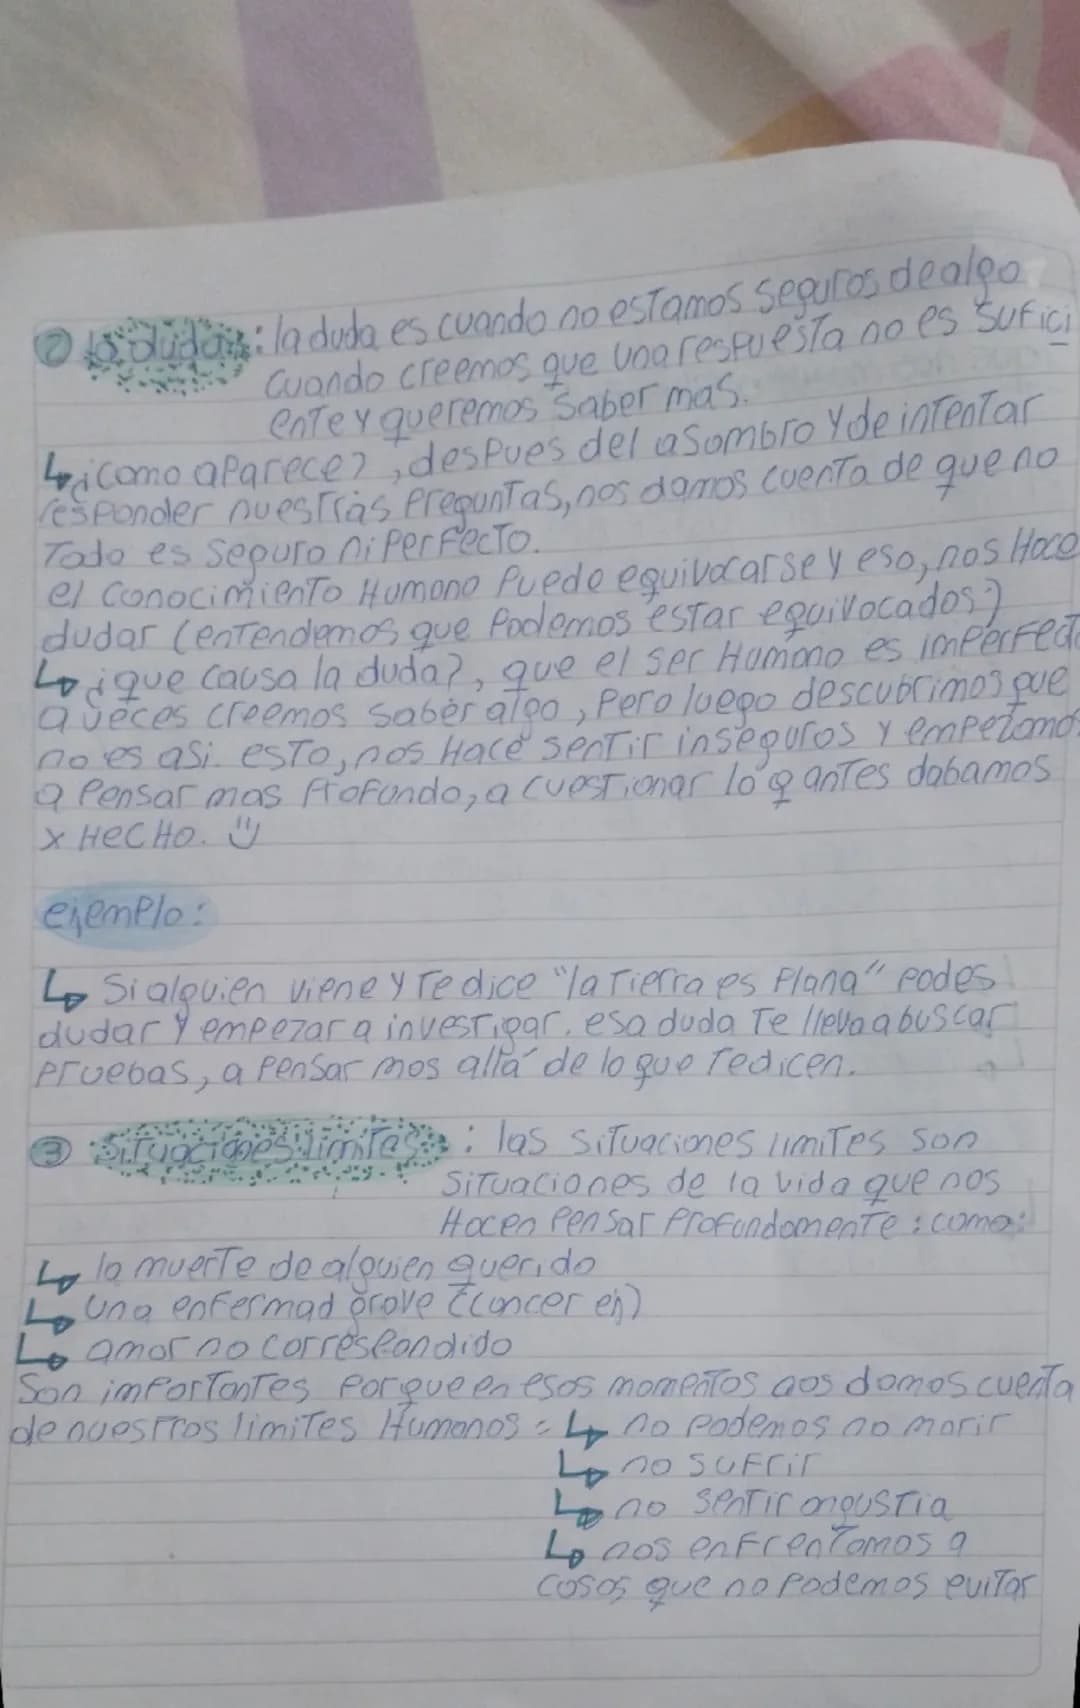 ② la duda: la duda es cuando no estamos seguros de algo
cuando creemos que una respuesta no es sufici
ente y queremos saber mas.
↳ ¿como aparece?, despues del asombro y de intentar
responder nuestras preguntas, nos damos cuenta de que no
Todo es seguro ni perfecto.
el conocimiento Humano Puede equivocarse y eso, nos Hace
dudar (entendemos que Podemos estar equivocados:)
↳ ¿que causa la duda?, que el ser Humano es imperfecto
a veces creemos saber algo, Pero luego descubrimos que
no es asi. esto, nos Hace sentir inseguros y empezamos
a Pensar mas Profundo, a cuestionar lo q antes dabamos
x HECHO. :)
ejemplo:
↳ Si alguien viene y te dice "la Tierra es Plana" Podes
dudar y empezar a investigar. esa duda Te lleva a buscar
Pruebas, a Pensar mas allá de lo que te dicen.
③ Situaciones limites: las situaciones limites son
situaciones de la vida que nos
Hacen Pensar Profundamente: como:
↳ la muerte de alguien querido
↳ una enfermad grave (cancer ej)
↳ amor no correspondido
Son importantes Porque en esos momentos nos damos cuenta
de nuestros limites Humanos: ↳ no Podemos no morir
↳ no sufrir
↳ no sentir angustia
↳ nos enfrentamos a
cosas que no Podemos evitar